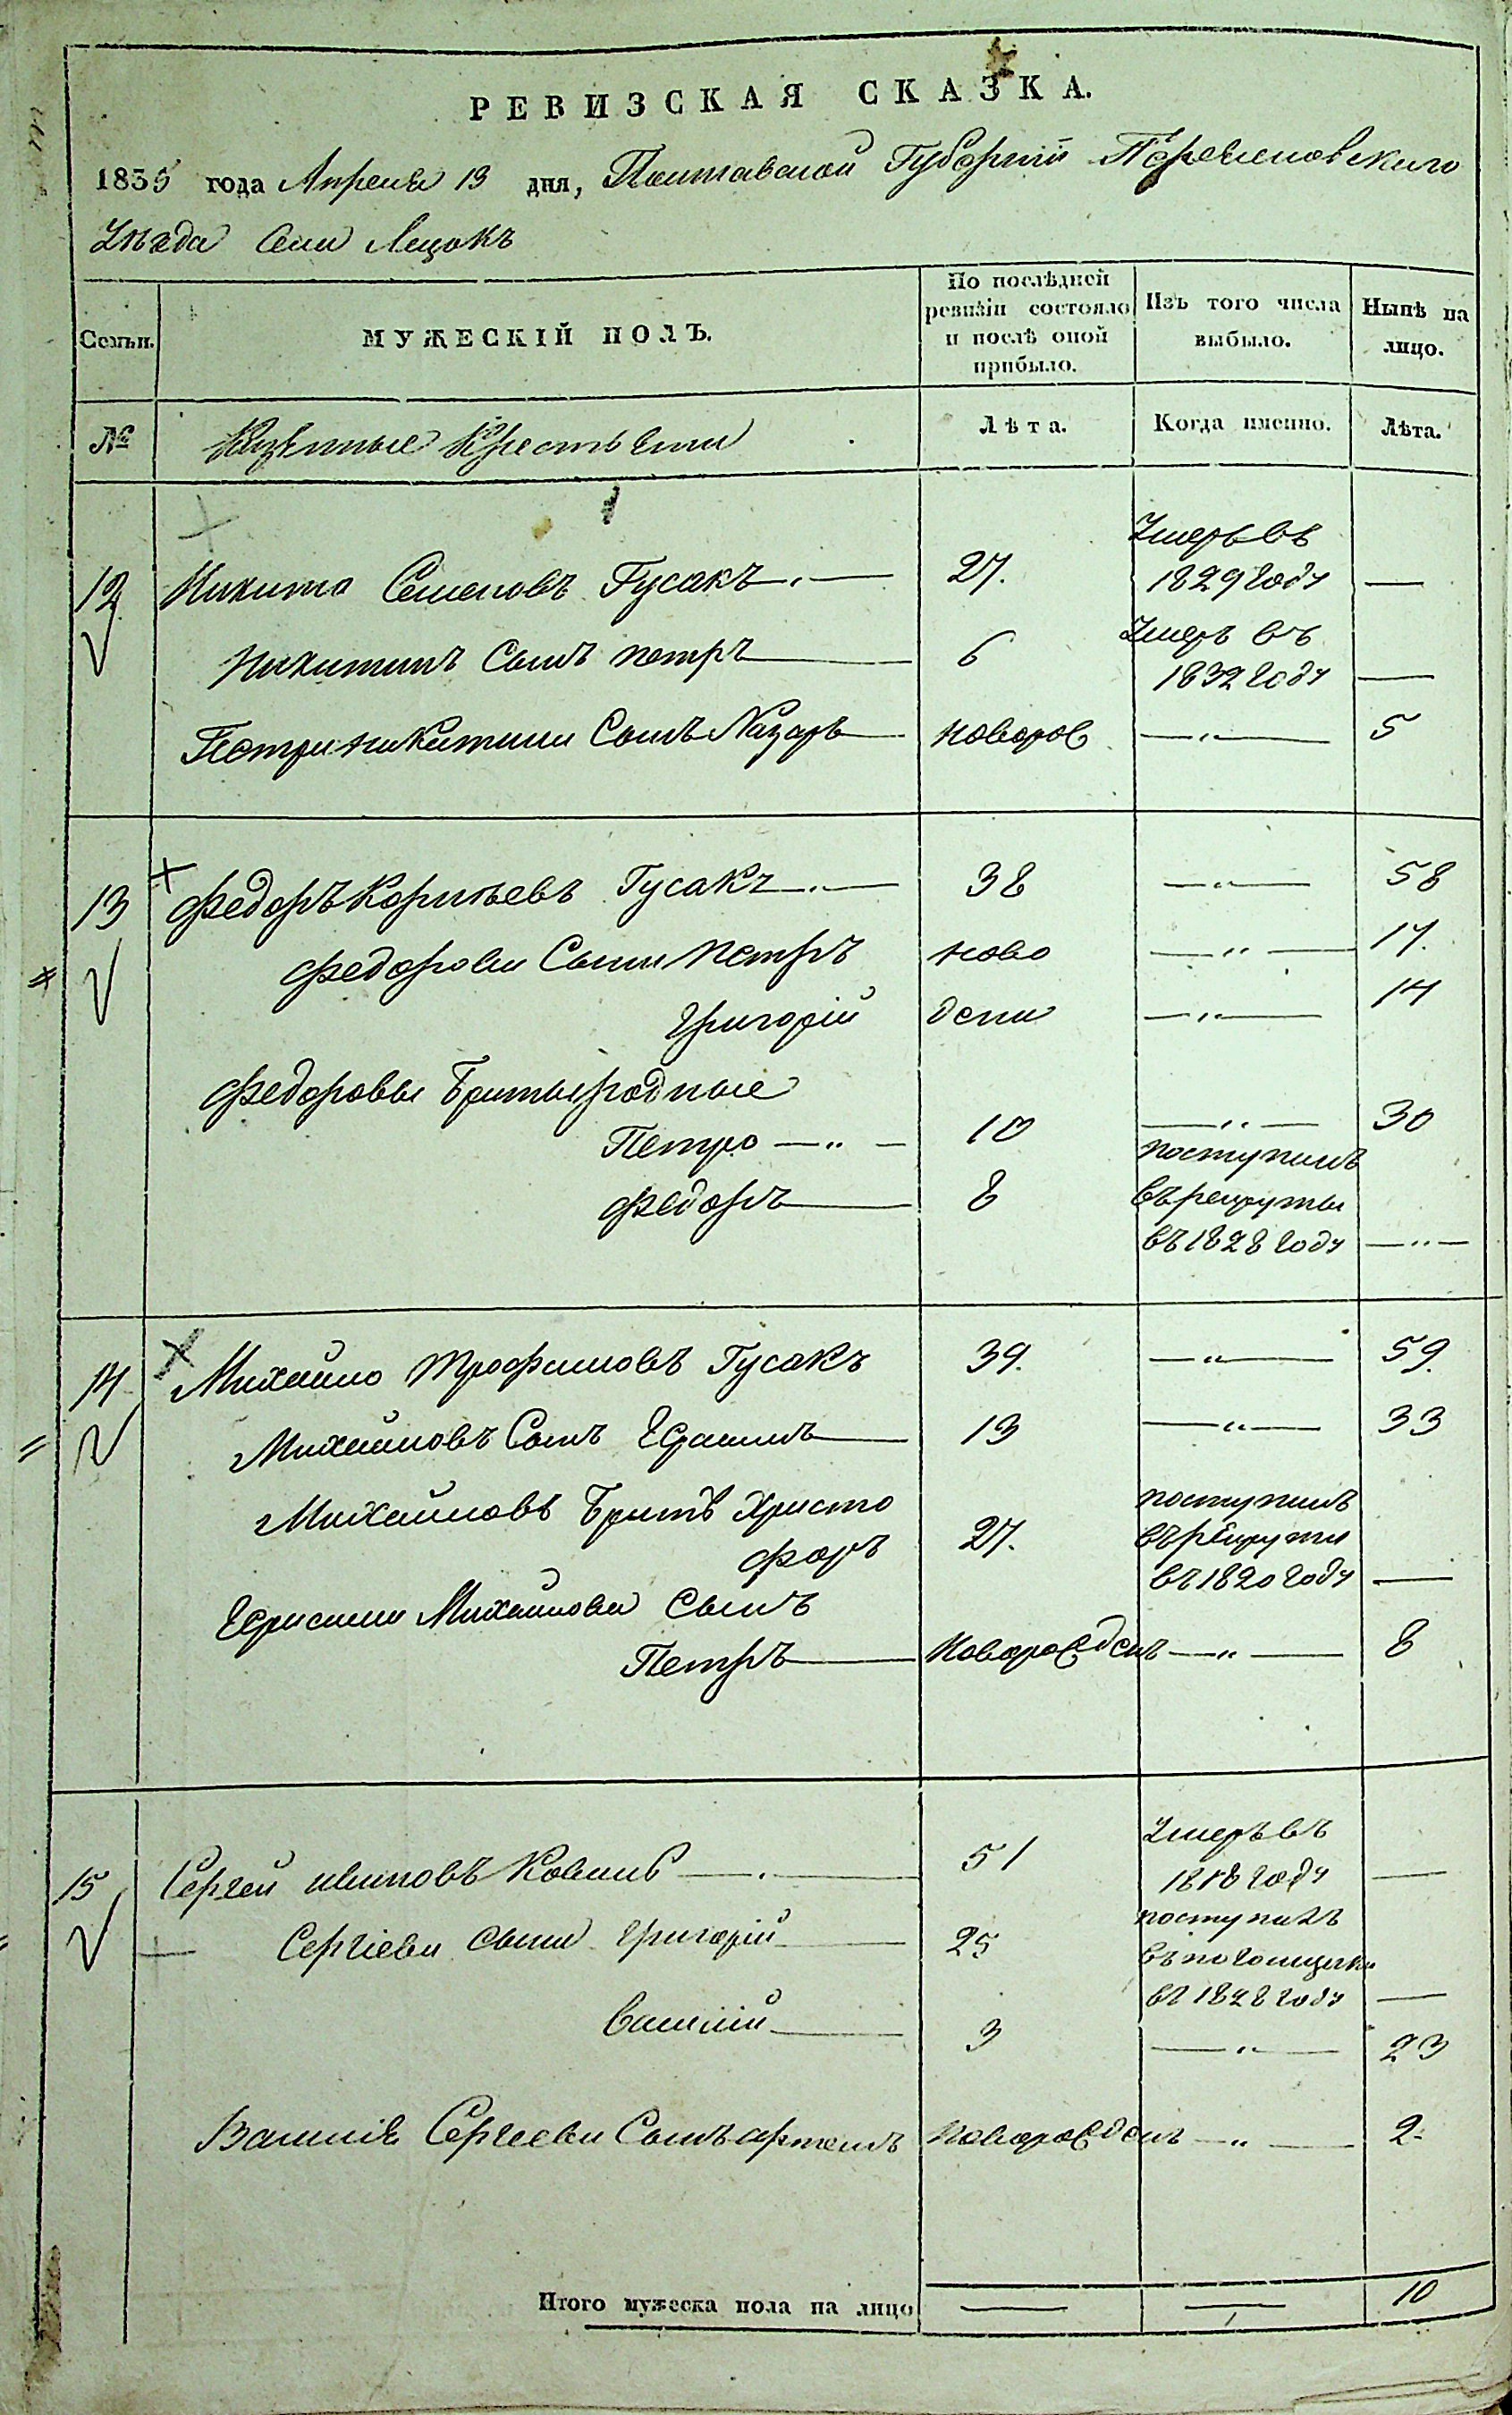 РЕВИЗСКАЯ СКАЗКА.
1835 года Апреля 13 дня, Полтавской Губернии Переяславского
Уѣзда Села Лецокъ
Семьи.
МУЖЕСКІЙ ПОЛЪ.
По послѣдней ревизіи состояло и послѣ оной прибыло.
Изъ того числа выбыло.
Нынѣ на лицо.
№
Казенные Крестьяне
Лѣта.
Когда именно.
Лѣта.
12 Никита Семеновъ Гусакъ 27. Умеръ въ 1829 году —
Никитинъ Сынъ петръ 6 Умеръ въ 1832 году —
Петра никитина Сынъ Назаръ новорож — " — 5
13 Федоръ Корнѣевъ Гусакъ 38 — " — 58
Федоровы Сыны Петръ ново — " — 17.
Григорій дены — " — 14
Федоровы братья родные
Петро — " — 10 — " — 30
Федоръ 8 поступилъ въ рекруты въ 1828 году — " —
14 Михайло Трофимовъ Гусакъ 39. — " — 59.
Михайловъ Сынъ Герасимъ 13 — " — 33
Михайловъ братъ Христо
форъ 27. поступилъ въ рекруты въ 1820 году —
Герасима Михайлова Сынъ
Петръ новорожденъ — " — 8
15 Сергей ивановъ Коваль 51 Умеръ въ 1818 году —
Сергіевы сыны Григорій 25 поступилъ въ погонщики в 1828 году —
Василій 3 — " — 23
Василія Сергеева Сынъ артемъ новорожденъ — " — 2.
Итого мужеска пола на лицо — — 10